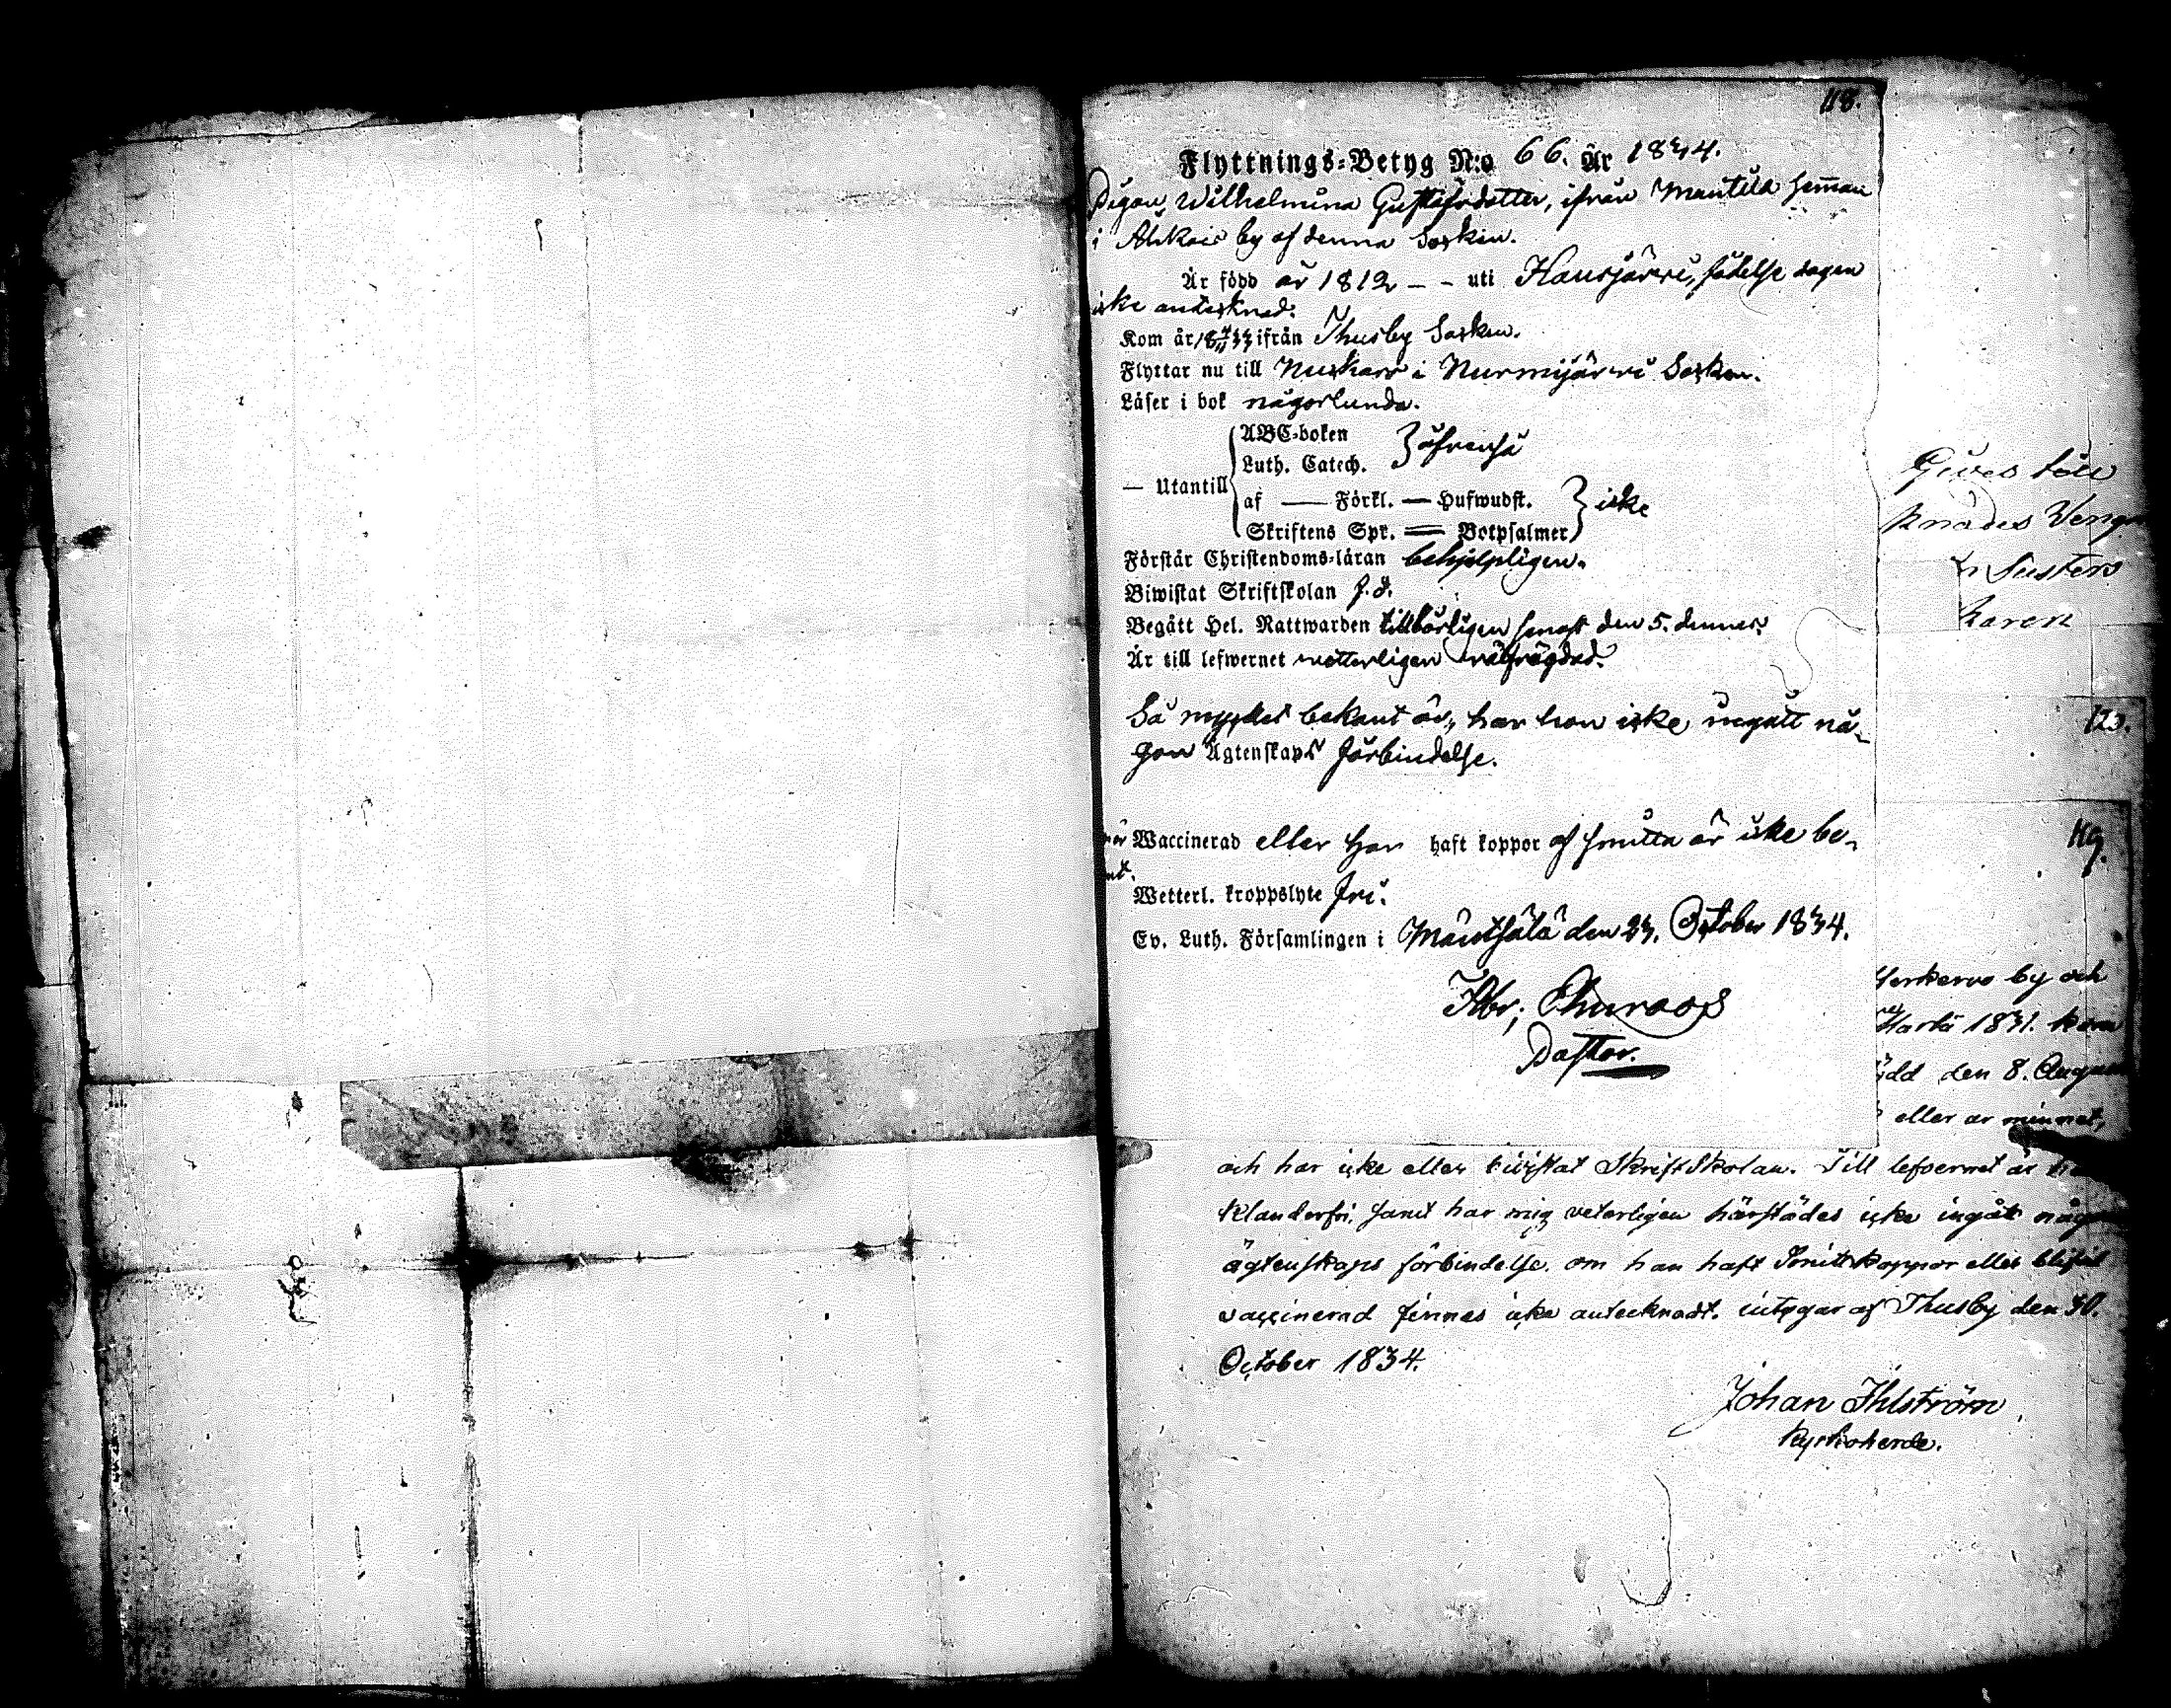 118.
Flyttnings-Betyg N:o 66. År 1834.
Pigan Wilhelmina Gustafsdotter, ifrån Mantila heman
i Ahkois by af denna Socken.
Är född år 1812 - - uti Hausjärvi, födelse dagen
icke antecknad.
Kom år 18 33 ifrån Thusby Socken.
Flyttar nu till Nuckars i Nurmijärvi Socken.
Läser i bok någorlunda.
— Utantill
ABC-boken
Luth. Catech. } äfvenså
af — Förkl. — Hufwudst.
Skriftens Spr. = Botpsalmer } icke
Förstår Christendoms-läran behjelpligen.
Biwistat Skriftskolan J. d.
Begått Hel. Nattwarden tillbörligen senast den 5. dennes.
Är till lefwernet vetterligen välfrägdad.
Så mycket bekant är, har hon icke ingått nå-
gon Ägtenskaps förbindelse.
Waccinerad eller har haft koppor af smitta är icke be-
Wetterl. kroppslyte fri.
Ev. Luth. Församlingen i Mäntsälä den 23. October 1834.
Abr;
Pastor.
Gives till
knades
Susters
karen
123.
119.
by och
1831. kom
ödd den 8. August
eller ar minnet,
och har icke eller biwistat Skriftskolan. Till lefvernet är
klanderfri, samt har mig veterligen härstädes icke ingåt någon
ägtenskaps förbindelse. om han haft Smittkoppor eller blifvit
vaccinerad finnes icke antecknadt. intygar af Thusby den 30.
October 1834.
Johan Ihlström
Kyrkoherde.